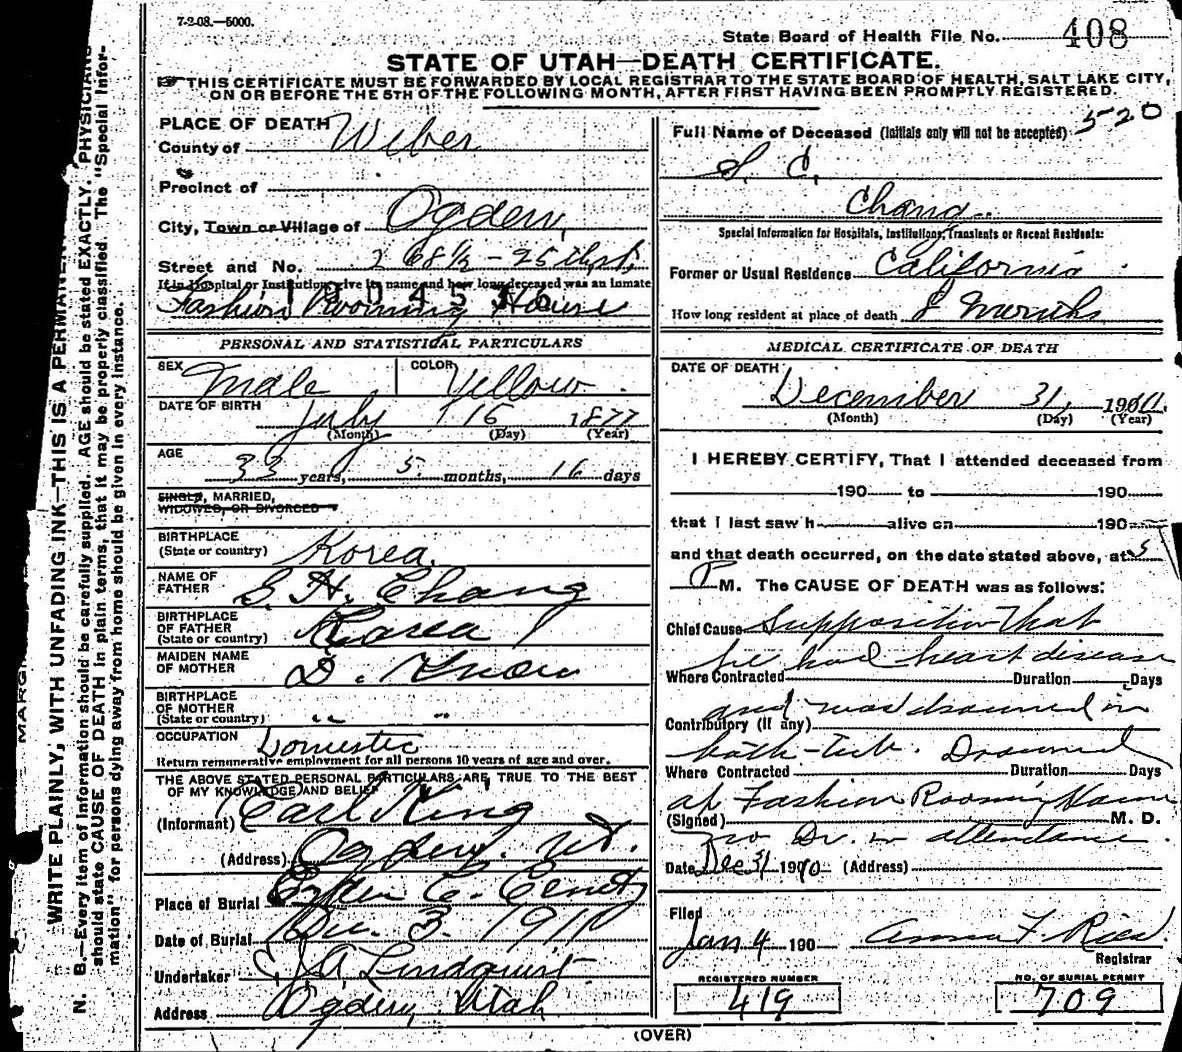 7-2-08.—5000.
State Board of Health File No. 408
STATE OF UTAH—DEATH CERTIFICATE.
THIS CERTIFICATE MUST BE FORWARDED BY LOCAL REGISTRAR TO THE STATE BOARD OF HEALTH, SALT LAKE CITY,
ON OR BEFORE THE 5TH OF THE FOLLOWING MONTH, AFTER FIRST HAVING BEEN PROMPTLY REGISTERED.
PLACE OF DEATH
County of Weber
Precinct of
City, Town or Village of Ogden,
Street and No. 268½ - 25th st.
If in Hospital or Institution, give its name and how long deceased was an inmate
Fashion Rooming House
PERSONAL AND STATISTICAL PARTICULARS
SEX Male COLOR Yellow.
DATE OF BIRTH July 15 1877
(Month) (Day) (Year)
AGE
33 years, 5 months, 16 days
SINGLE, MARRIED,
WIDOWED, OR DIVORCED
BIRTHPLACE
(State or country) Korea.
NAME OF
FATHER S. H. Chang
BIRTHPLACE
OF FATHER
(State or country) Korea
MAIDEN NAME
OF MOTHER D. Know
BIRTHPLACE
OF MOTHER
(State or country) " "
OCCUPATION Domestic
Return remunerative employment for all persons 10 years of age and over.
THE ABOVE STATED PERSONAL PARTICULARS ARE TRUE TO THE BEST
OF MY KNOWLEDGE AND BELIEF
(Informant) Carl King
(Address) Ogden. Ut.
Place of Burial Ogden C.
Date of Burial Dec. 3. 1911
Undertaker J A Lindquist
Address Ogden, Utah
520
Full Name of Deceased (Initials only will not be accepted)
S. C.
Chang.
Special Information for Hospitals, Institutions, Transients or Recent Residents:
Former or Usual Residence California
How long resident at place of death Months
MEDICAL CERTIFICATE OF DEATH
DATE OF DEATH
December 31, 1910
(Month) (Day) (Year)
I HEREBY CERTIFY, That I attended deceased from
190 to 190
that I last saw h alive on 190
and that death occurred, on the date stated above, at 5
P M. The CAUSE OF DEATH was as follows:
Chief Cause Supposition that
he had heart disease
Where Contracted Duration Days
and was drowned in
Contributory (if any)
bath-tub. Drowned
Where Contracted Duration Days
at Fashion Rooming House
(Signed) M. D.
no Dr. in attendance.
Date Dec 31 1910 (Address)
Filed
Jan 4 190 Anna F. Ried.
Registrar
REGISTERED NUMBER
419
NO. OF BURIAL PERMIT
709
(OVER)
WRITE PLAINLY, WITH UNFADING INK—THIS IS A
N. B.—Every item of information should be carefully supplied. AGE should be stated EXACTLY. PHYSICIANS
should state CAUSE OF DEATH in plain terms, that it may be properly classified. The "Special Infor-
mation" for persons dying away from home should be given in every instance.